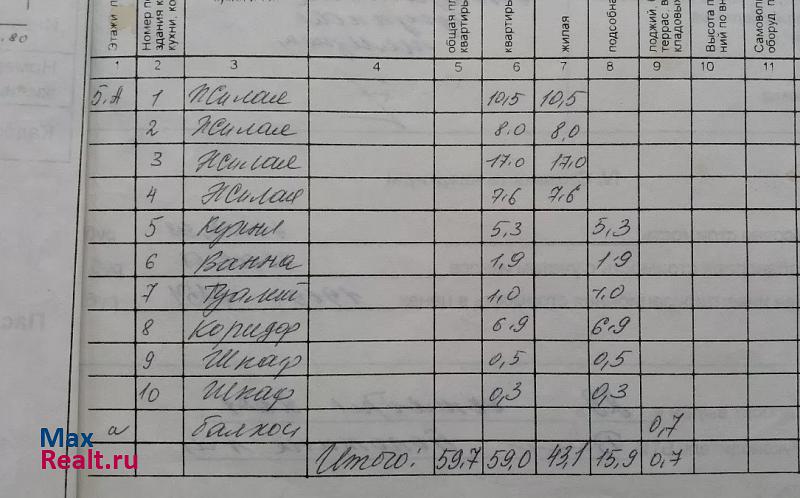 .80
Этажи
Номер по
здания
кухни, ко
общая пл
квартиры
квартиры
жилая
подсобна
лоджий,
террас, в
кладовых
Высота п
ний по вн
Самовол
оборуд. п
1 2 3 4 5 6 7 8 9 10 11
5.А 1 Жилая 10,5 10,5
2 Жилая 8.0 8,0
3 Жилая 17.0 17,0
4 Жилая 7.6 7.6
5 Кухня 5,3 5,3
6 Ванна 1,9 1.9
7 Туалет 1,0 1.0
8 Коридор 6.9 6.9
9 Шкаф 0,5 0,5
10 Шкаф 0,3 0,3
а балкон 0,7
Итого: 59,7 59,0 43,1 15,9 0,7
Max
Realt.ru